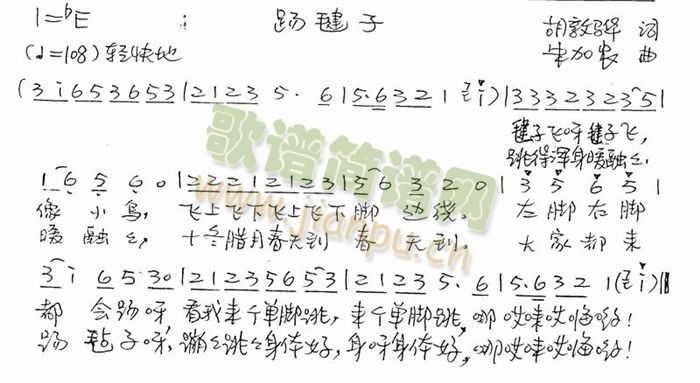 1=♭E 踢毽子 胡敦骅 词
(♩=108) 轻快地 朱加农 曲
(3 i 6 5 3 6 5 3 | 2 1 2 3 5. 6 | 5.6 3 2 1 i) | 3 3 3 2 3 2 3 5 |
毽子飞呀毽子飞,
跳得浑身暖融々,
1 6 5 6 0 | 2 2 2 1 2 1 2 3 | 5 6 3 2 0 | 3 5 6 5 |
像 小 鸟, 飞上飞下飞上飞下脚 边绕。 左脚右脚
暖 融々, 十冬腊月春天到 春 天到。 大家都来
3 i 6 5 3 0 | 2 1 2 3 5 6 5 3 | 2 1 2 3 5. 6 | 5.6 3 2 1 ( i) ‖
都 会踢呀 看我来个单脚跳, 来个单脚跳, 哪哎哟!
踢 毽子呀, 蹦々跳々身体好, 身呀身体好, 哪哎哟!
歌谱简谱网
www.jianpu.cn